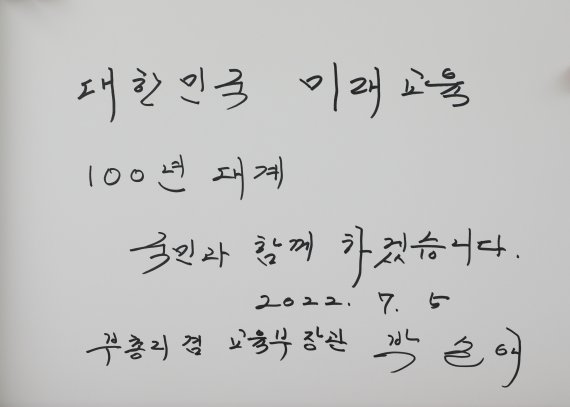 대한민국 미래교육
100년 대계
국민과 함께 하겠습니다.
2022. 7. 5
부총리 겸 교육부장관 박순애